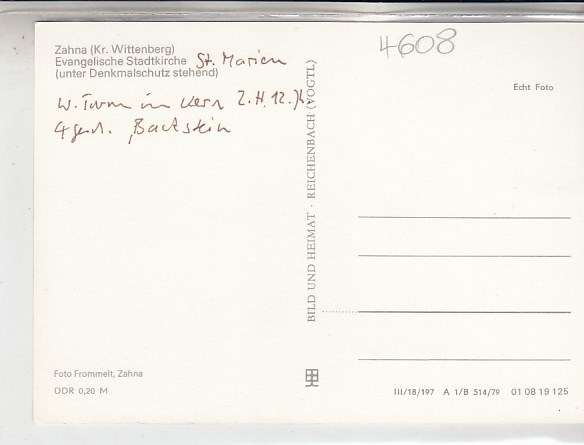 4608
Zahna (Kr. Wittenberg)
Evangelische Stadtkirche St. Marien
(unter Denkmalschutz stehend)
W. Turm im Kern 2. H. 12. Jh.
Backstein
Echt Foto
BILD UND HEIMAT · REICHENBACH (VOGTL)
Foto Frommelt, Zahna
DDR 0,20 M
III/18/197 A 1/B 514/79 01 08 19 125